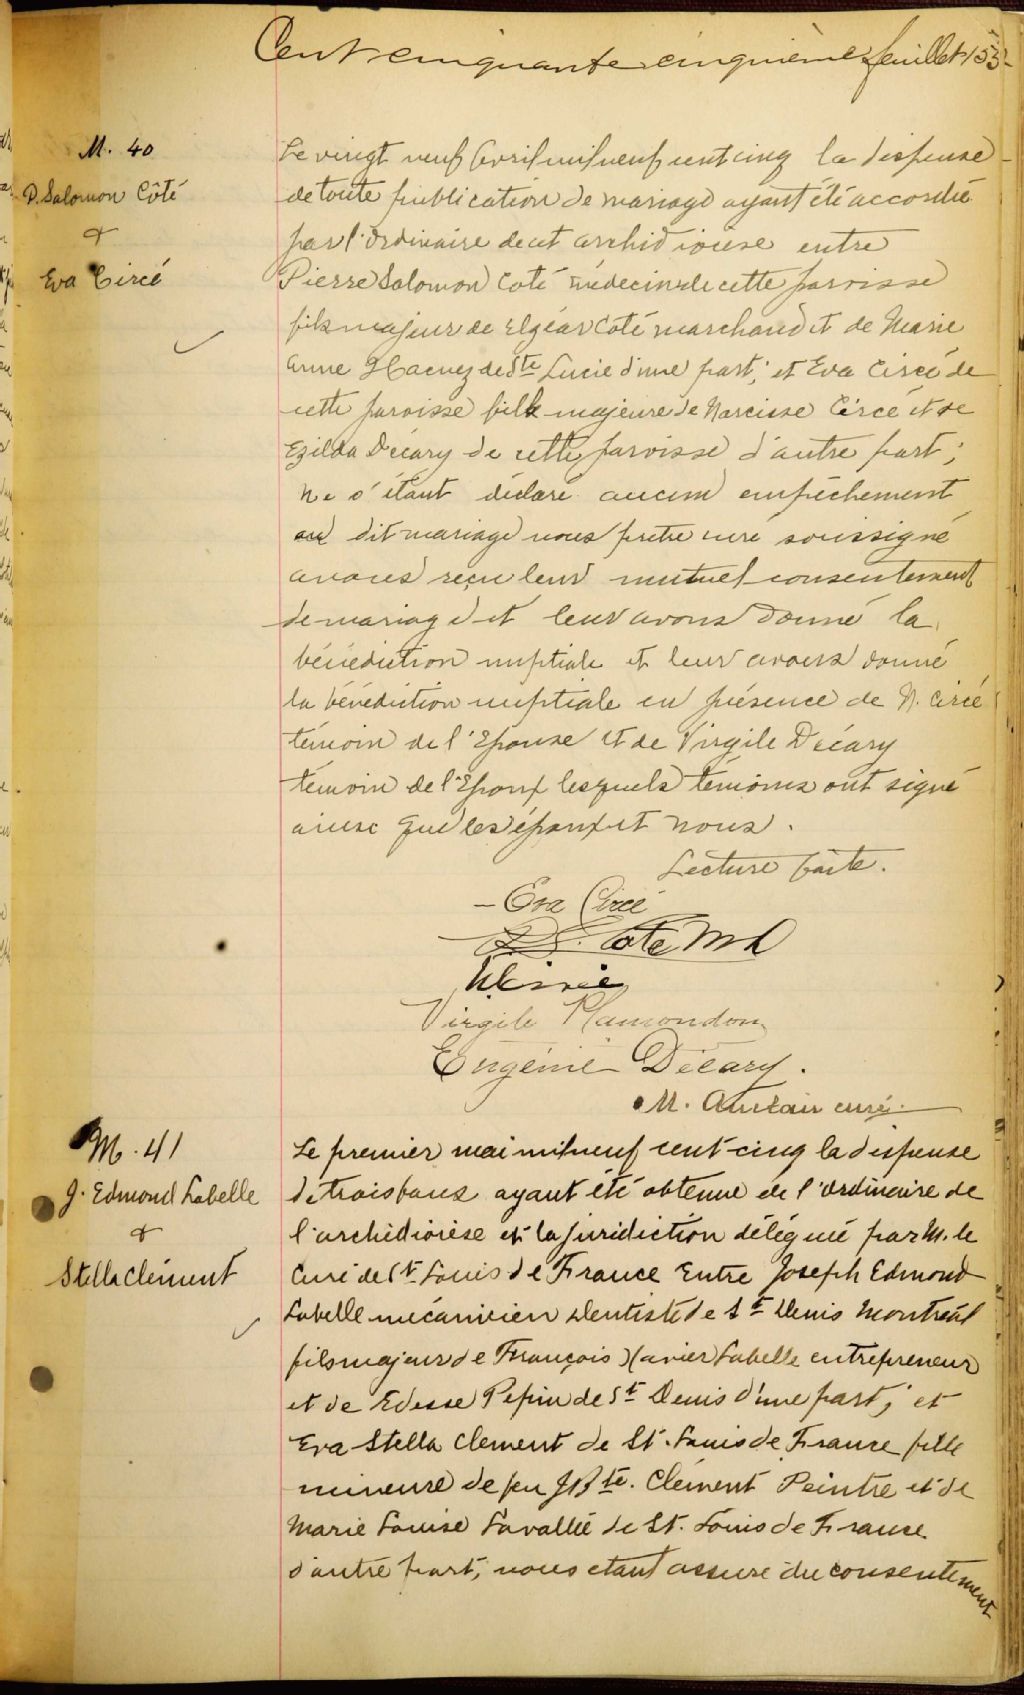 Cent cinquante cinquième feuillet 155
M. 40
P. Salomon Côté
&
Eva Circé
Le vingt neuf Avril mil neuf cent cinq la dispense
de toute publication de mariage ayant été accordée
par l'Ordinaire de cet archidiocèse entre
Pierre Salomon Coté médecin de cette paroisse
fils majeur de Elgéar Coté marchand et de Marie
Anne Hacuez de Ste Lucie d'une part; et Eva Circé de
cette paroisse fille majeure de Narcisse Circé et de
Ezilda Décary de cette paroisse d'autre part;
ne s'étant déclaré aucun empêchement
au dit mariage nous prêtre curé soussigné
avons reçu leur mutuel consentement
de mariage et leur avons donné la
bénédiction nuptiale et leur avons donné
la bénédiction nuptiale en présence de N. Circé
témoin de l'Epouse et de Virgile Décary
témoin de l'Epoux lesquels témoins ont signé
ainsi que les époux et nous.
Lecture faite.
– Eva Circé
P. S. Coté M D
N. Circé
Virgile Plamondon
Eugénie Décary.
M. Auclair curé.
M. 41
J. Edmond Labelle
&
Stella Clément
Le premier mai mil neuf cent-cinq la dispense
de trois bans ayant été obtenue de l'ordinaire de
l'archidiocèse et la juridiction délégué par M. le
Curé de St Louis de France Entre Joseph Edmond
Labelle mécanicien dentiste de St Denis Montréal
fils majeur de François Xavier Labelle entrepreneur
et de Edesse Pepin de St Denis d'une part; et
Eva Stella Clement de St. Louis de France fille
mineure de feu J Bte. Clément Peintre et de
Marie Louise Lavallée de St. Louis de France
d'autre part; nous étant assuré du consentement